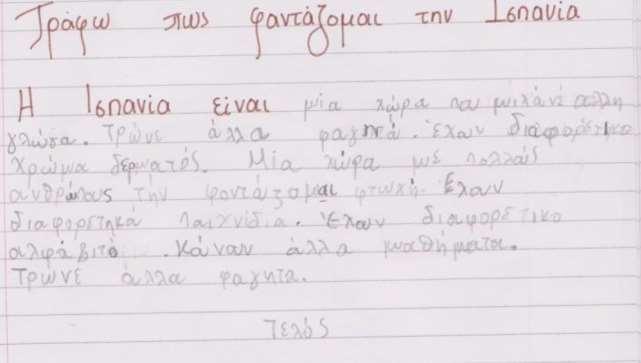 Γράφω πως φαντάζομαι την Ισπανία
Η Ισπανία είναι μία χώρα που μιλάνε άλλη
γλώσσα. Τρώνε άλλα φαγητά. Έχουν διαφορετικο
χρώμα δερματός. Μία χώρα με πολλούς
ανθρώπους την φαντάζομαι φτωχή. Έχουν
διαφορετηκά παιχνίδια. Έχουν διαφορετικο
αλφάβιτο. Κάνουν άλλα μαθήματα.
Τρώνε άλλα φαγητα.
Τελός